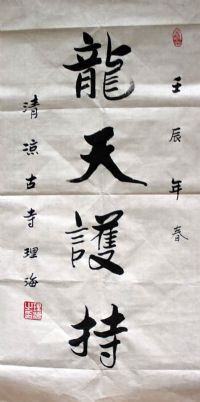 壬辰年春
龍天護持
清涼古寺理海